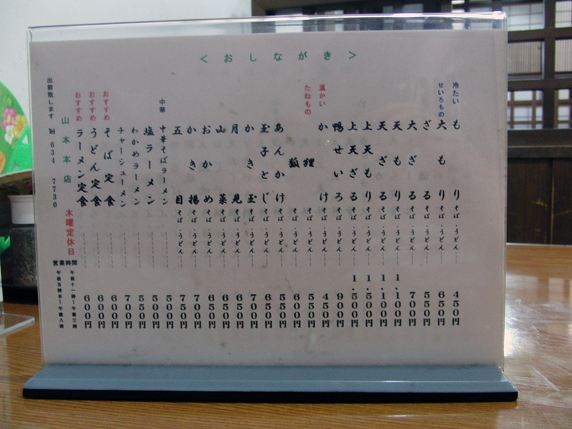 <おしながき>
冷たい
せいろもの
もり そば・うどん 450円
大もり そば・うどん 650円
ざる そば・うどん 550円
大ざる そば・うどん 700円
天もり そば・うどん 1,100円
天ざる そば・うどん 1,100円
上天もり そば・うどん 1,500円
上天ざる そば・うどん 1,500円
鴨せいろ そば・うどん 900円
温かい
たねもの
かけ そば・うどん 450円
狸 そば・うどん 550円
狐 そば・うどん
あんかけ そば・うどん
玉子とじ そば・うどん 650円
かき玉 そば・うどん
月見 そば・うどん 550円
山菜 そば・うどん 650円
おかめ そば・うどん
かき揚 そば・うどん
五目 そば・うどん 750円
中華
中華そばラーメン 500円
塩ラーメン
わかめラーメン 550円
チャーシューメン 700円
おすすめ そば定食 600円
おすすめ うどん定食 600円
おすすめ ラーメン定食 600円
木曜定休日
営業時間
午前十一時~午後三時
午後五時半~午後八時
山本本店
出前致します ℡ 634 7730